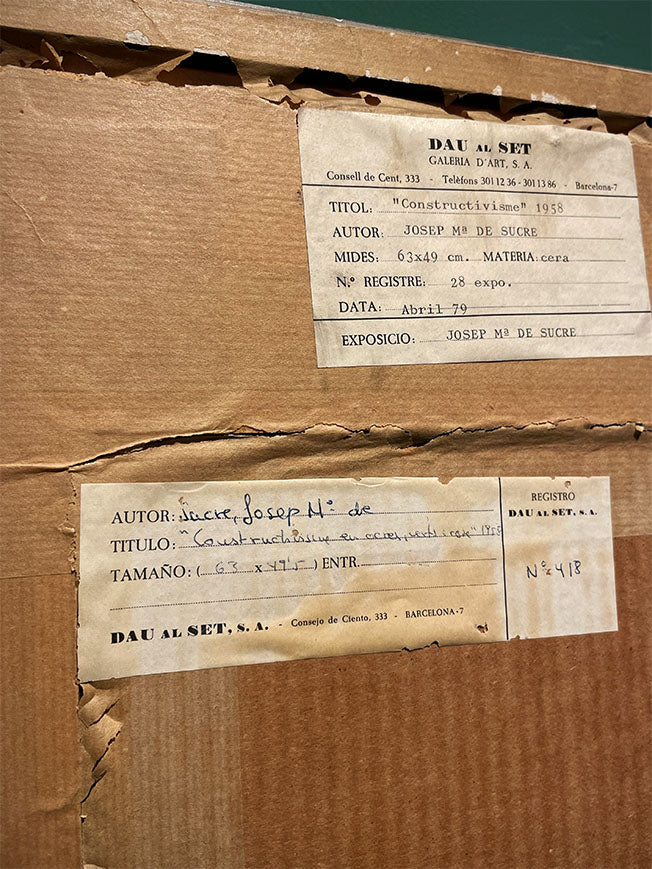 DAU AL SET
GALERIA D'ART, S. A.
Consell de Cent, 333 - Telèfons 301 12 36 - 301 13 86 - Barcelona-7
TITOL: "Constructivisme" 1958
AUTOR: JOSEP Mª DE SUCRE
MIDES: 63x49 cm. MATERIA: cera
N.º REGISTRE: 28 expo.
DATA: Abril 79
EXPOSICIO: JOSEP Mª DE SUCRE
AUTOR: Sucre, Josep Mº de
TITULO: "Constructivisme en ocres, verds i rosa" 1958
TAMAÑO: ( 63 x 49'5 ) ENTR.
DAU AL SET, S. A. - Consejo de Ciento, 333 - BARCELONA-7
REGISTRO
DAU AL SET, S. A.
Nº 418